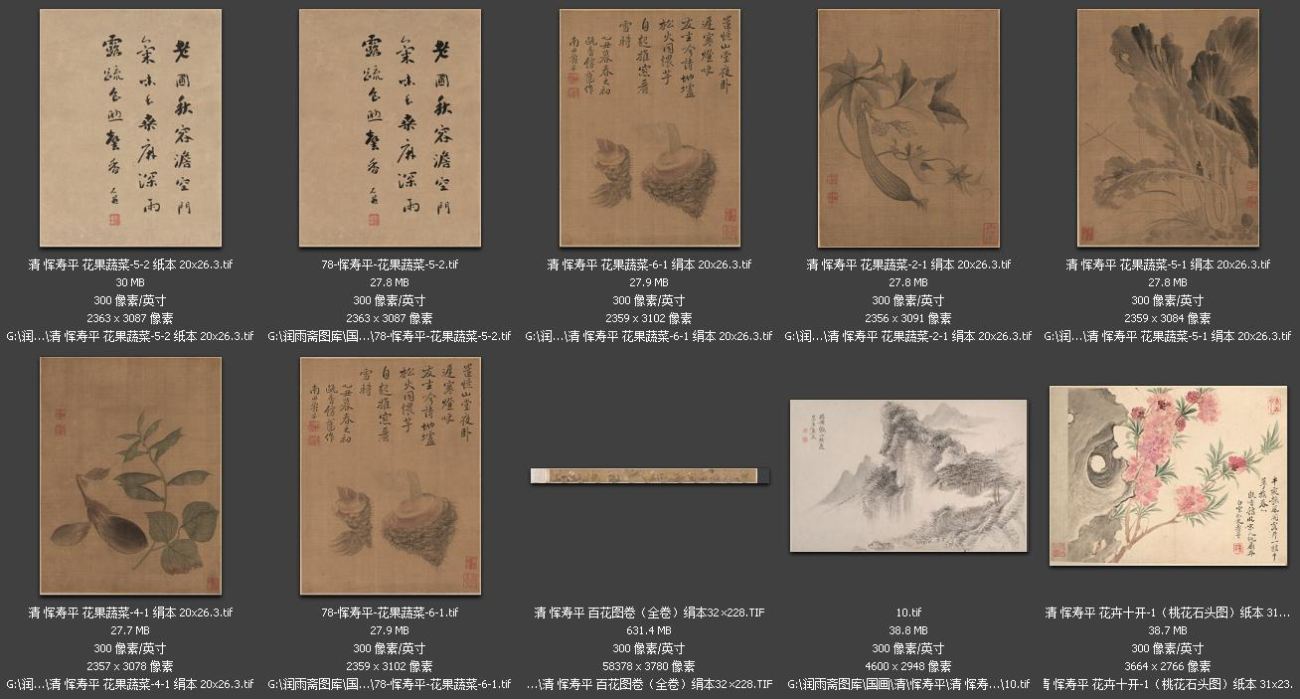 老圃秋容澹空門
氣味之桑麻深雨
露蹤名助馨香
老圃秋容澹空門
氣味之桑麻深雨
露蹤名助馨香
山堂夜卧
松火同煨芋
雪時
清 恽寿平 花果蔬菜-5-2 纸本 20x26.3.tif
30 MB
300 像素/英寸
2363 x 3087 像素
G:\润...\清 恽寿平 花果蔬菜-5-2 纸本 20x26.3.tif
78-恽寿平-花果蔬菜-5-2.tif
27.8 MB
300 像素/英寸
2363 x 3087 像素
G:\润雨斋图库\国...\78-恽寿平-花果蔬菜-5-2.tif
清 恽寿平 花果蔬菜-6-1 绢本 20x26.3.tif
27.9 MB
300 像素/英寸
2359 x 3102 像素
G:\润...\清 恽寿平 花果蔬菜-6-1 绢本 20x26.3.tif
清 恽寿平 花果蔬菜-2-1 绢本 20x26.3.tif
27.8 MB
300 像素/英寸
2356 x 3091 像素
G:\润...\清 恽寿平 花果蔬菜-2-1 绢本 20x26.3.tif
清 恽寿平 花果蔬菜-5-1 绢本 20x26.3.tif
27.8 MB
300 像素/英寸
2359 x 3084 像素
G:\润...\清 恽寿平 花果蔬菜-5-1 绢本 20x26.3.tif
清 恽寿平 花果蔬菜-4-1 绢本 20x26.3.tif
27.7 MB
300 像素/英寸
2357 x 3078 像素
G:\润...\清 恽寿平 花果蔬菜-4-1 绢本 20x26.3.tif
78-恽寿平-花果蔬菜-6-1.tif
27.9 MB
300 像素/英寸
2359 x 3102 像素
G:\润雨斋图库\国...\78-恽寿平-花果蔬菜-6-1.tif
清 恽寿平 百花图卷（全卷）绢本32×228.TIF
631.4 MB
300 像素/英寸
58378 x 3780 像素
...\清 恽寿平 百花图卷（全卷）绢本32×228.TIF
10.tif
38.8 MB
300 像素/英寸
4600 x 2948 像素
G:\润雨斋图库\国画\清\恽寿平\清 恽寿...\10.tif
清 恽寿平 花卉十开-1（桃花石头图）纸本 31...
38.7 MB
300 像素/英寸
3664 x 2766 像素
清 恽寿平 花卉十开-1（桃花石头图）纸本 31x23.